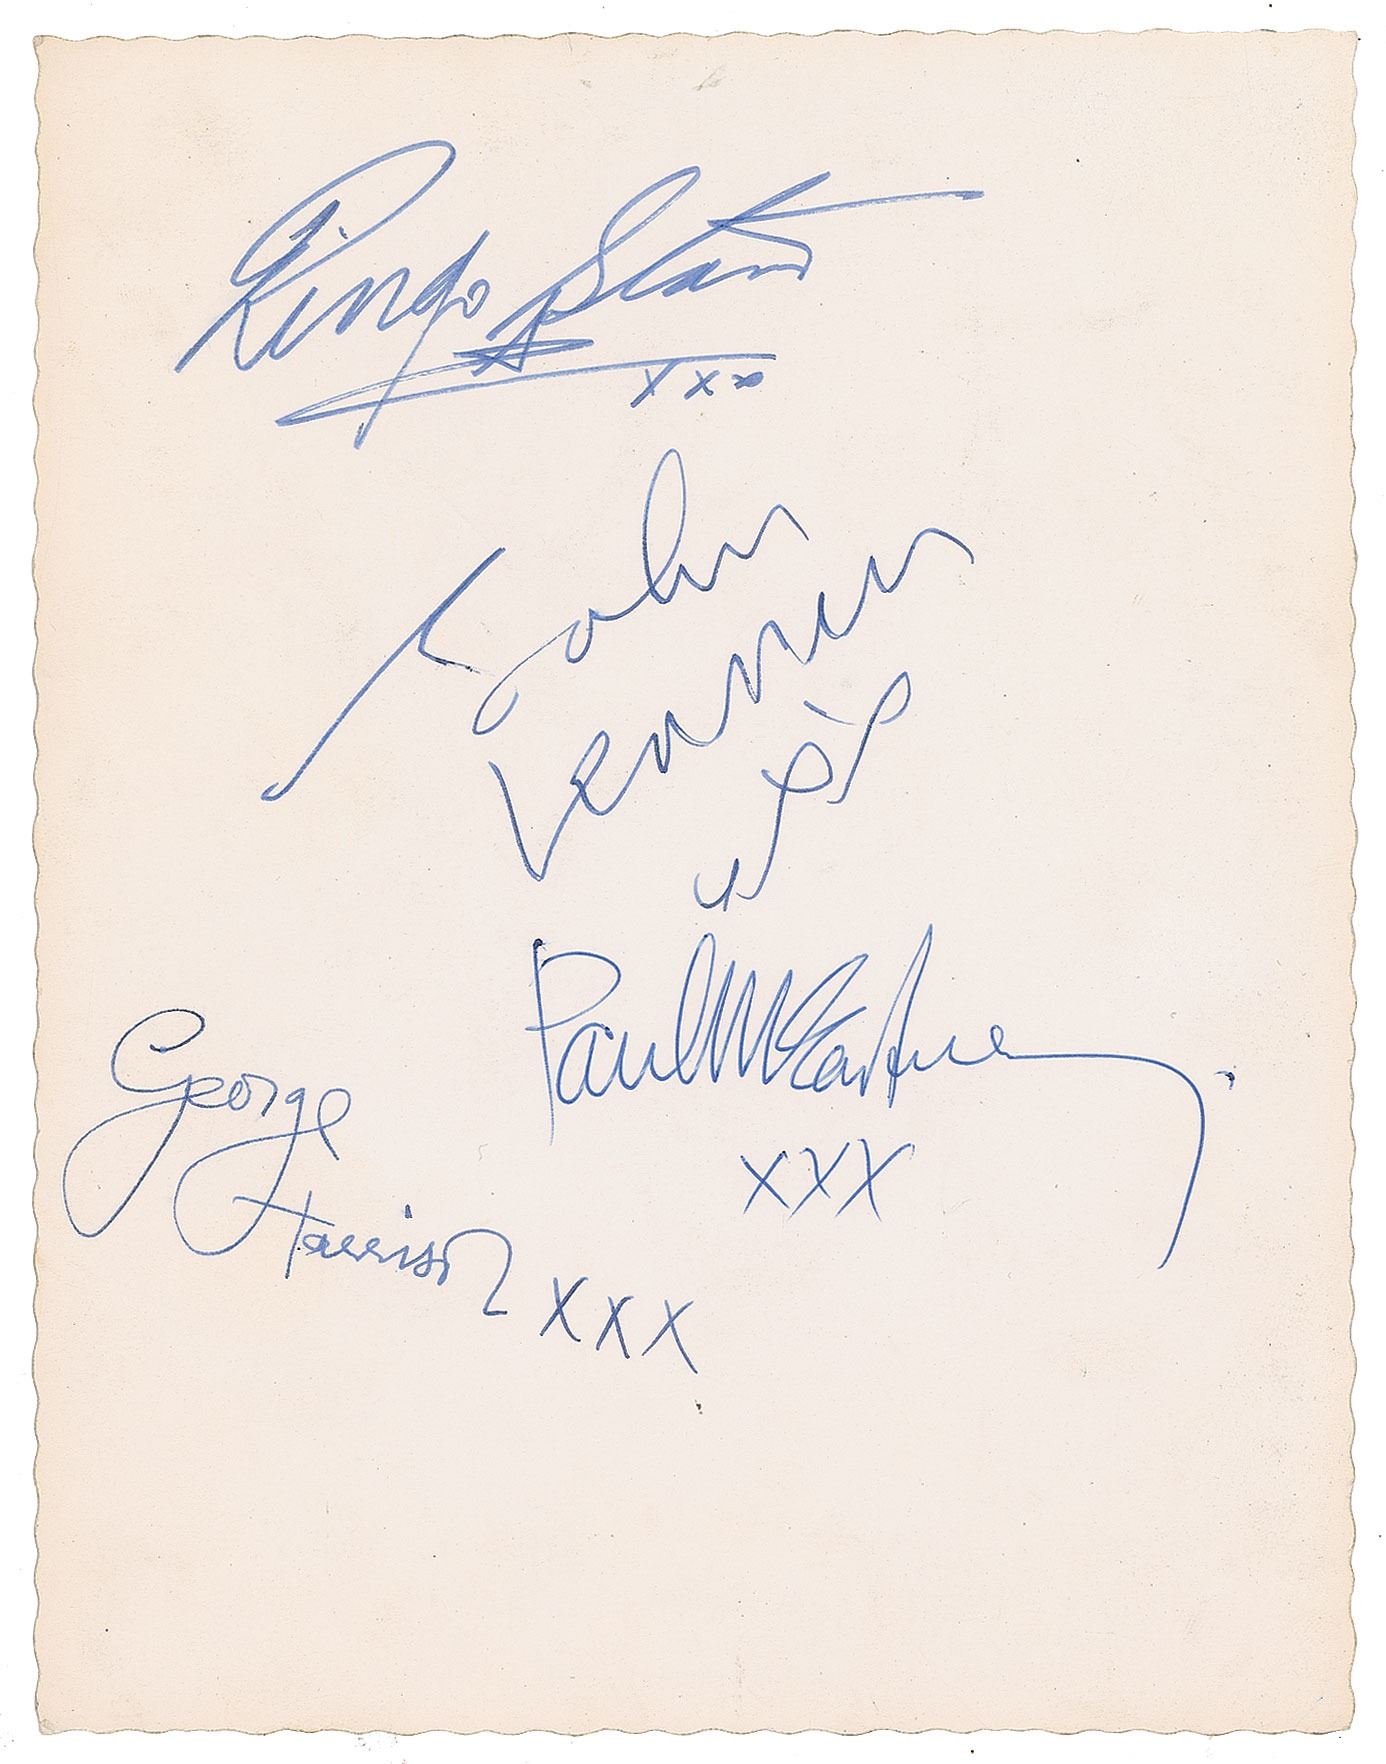 Ringo Starr
xxx
John
Lennon
xx
Paul McCartney
XXX
George
Harrison XXX